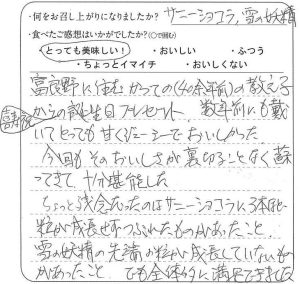 ・何をお召し上がりになりましたか？ サニーショコラ，雪の妖精
・食べたご感想はいかがでしたか？（○で囲む）
・とっても美味しい！ ・おいしい ・ふつう
・ちょっとイマイチ ・おいしくない
富良野に住むかつての（40余年前）の教え子
からの誕生日プレゼント 数年前にも戴
いてとっても甘くジューシーでおいしかった
今回もそのおいしさが裏切ることなく蘇
ってきて、十分堪能した
ちょっと残念だったのはサニーショコラに3本程
粒が成長せずつぶれたものがあったこと
雪の妖精の先端の粒が成長していないもの
があったこと でも全体的に満足できました